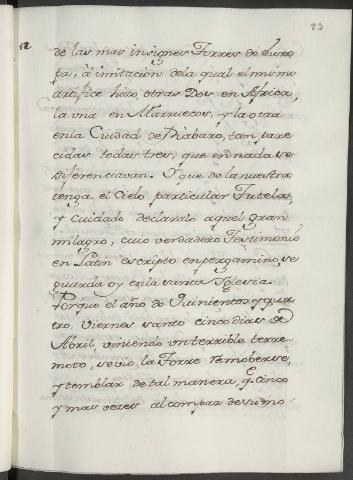 23
de las mas insignes Torres de Euro
pa, à imitacion dela qual el mismo
artifice hizo otras Dos en Africa,
la vna en Marruecos, y la otra
enla Ciudad de Rabaxo, tan pare
cidas todas tres, que en nada se
diferenciavan. Y que de la nuestra
tenga el Cielo particular Tutela,
y Cuidado declarolo aquel gran
milagro, cuio verdadero Testimonio
en Latin escripto en pergamino, se
guarda oy enla santa Iglesia.
Porque el año de Quinientos y qua
tro, Viernes santo cinco dias de
Abril, viniendo un terrible terre
moto, se vio la Torre remoberse,
y temblar de tal manera, q.e cinco
y mas vezes al compas de su mo-